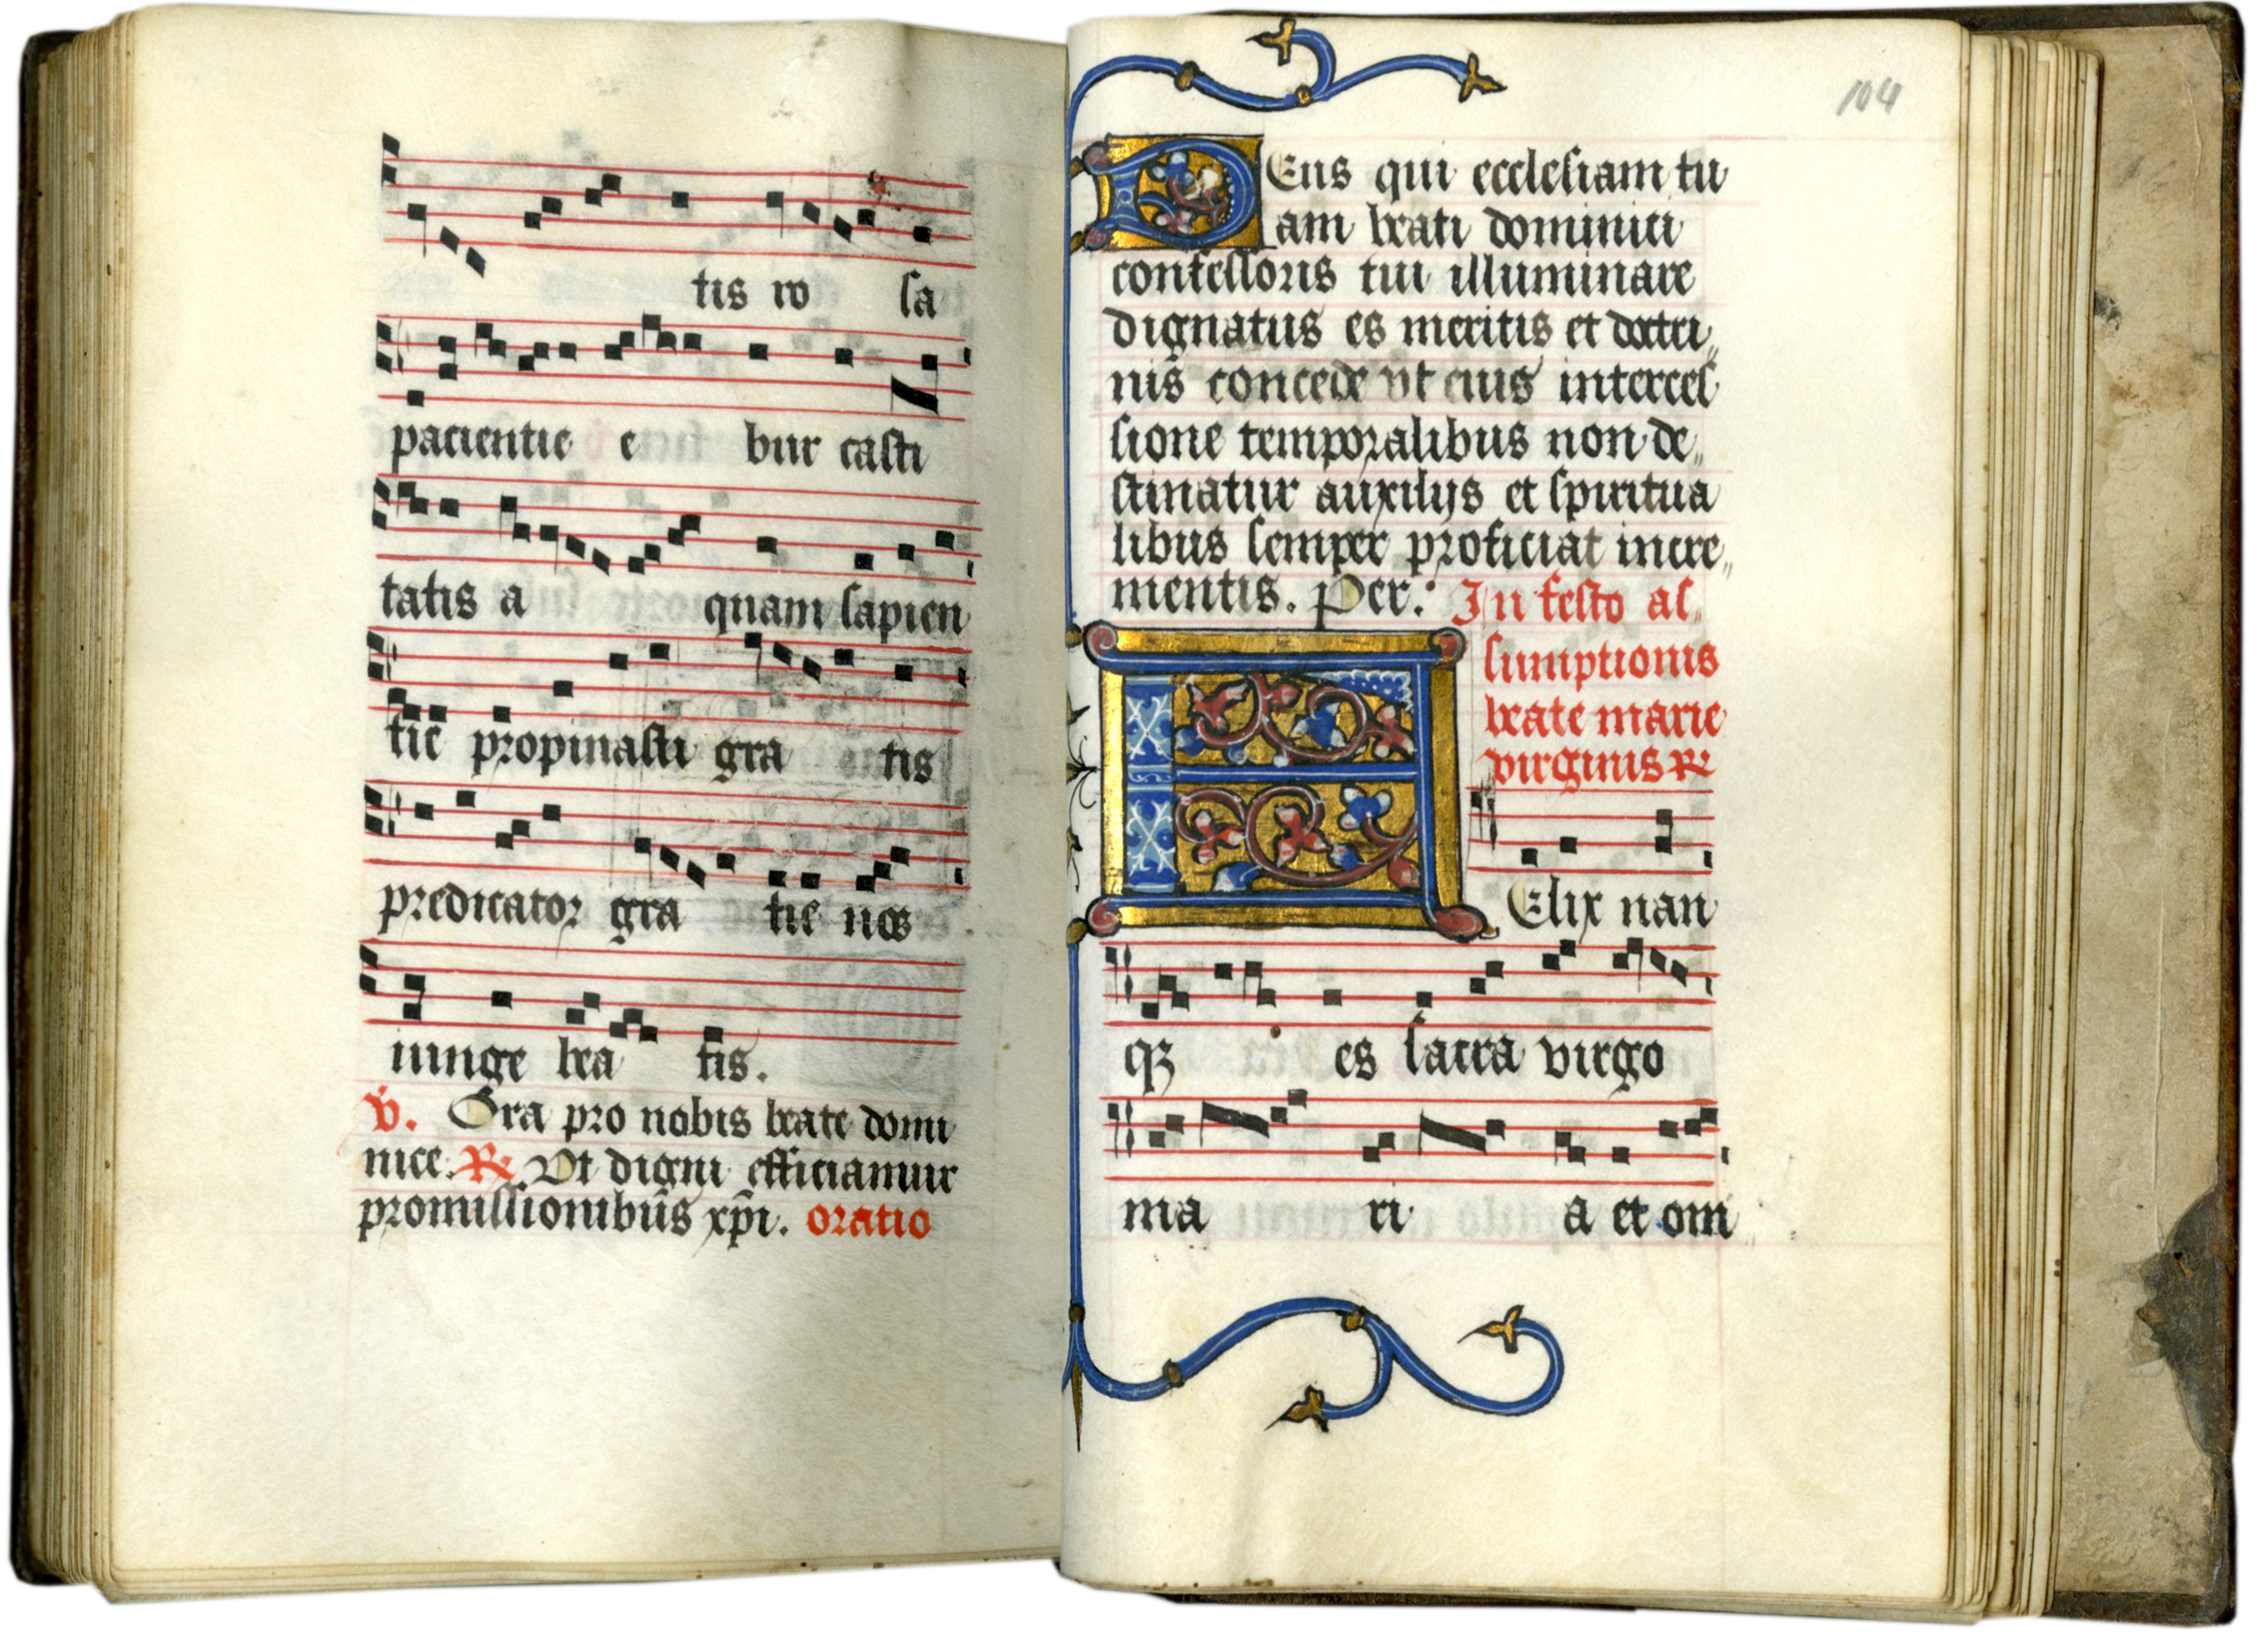 tis ro sa
pacientie e bur casti
tatis a quam sapien
tie propinasti gra tis
predicator gra tie nos
iunge bea tis.
V. Ora pro nobis beate domi
nice. R. Vt digni efficiamur
promissionibus xpi. oratio
104
DEus qui ecclesiam tu
am beati dominici
confessoris tui illuminare
dignatus es meritis et doctri
nis concede vt eius interces
sione temporalibus non de
stinatur auxilijs et spiritua
libus semper proficiat incre
mentis. Per. In festo as
sumptionis
beate marie
virginis R
FElix nan
qz es sacra virgo
ma ri a et om